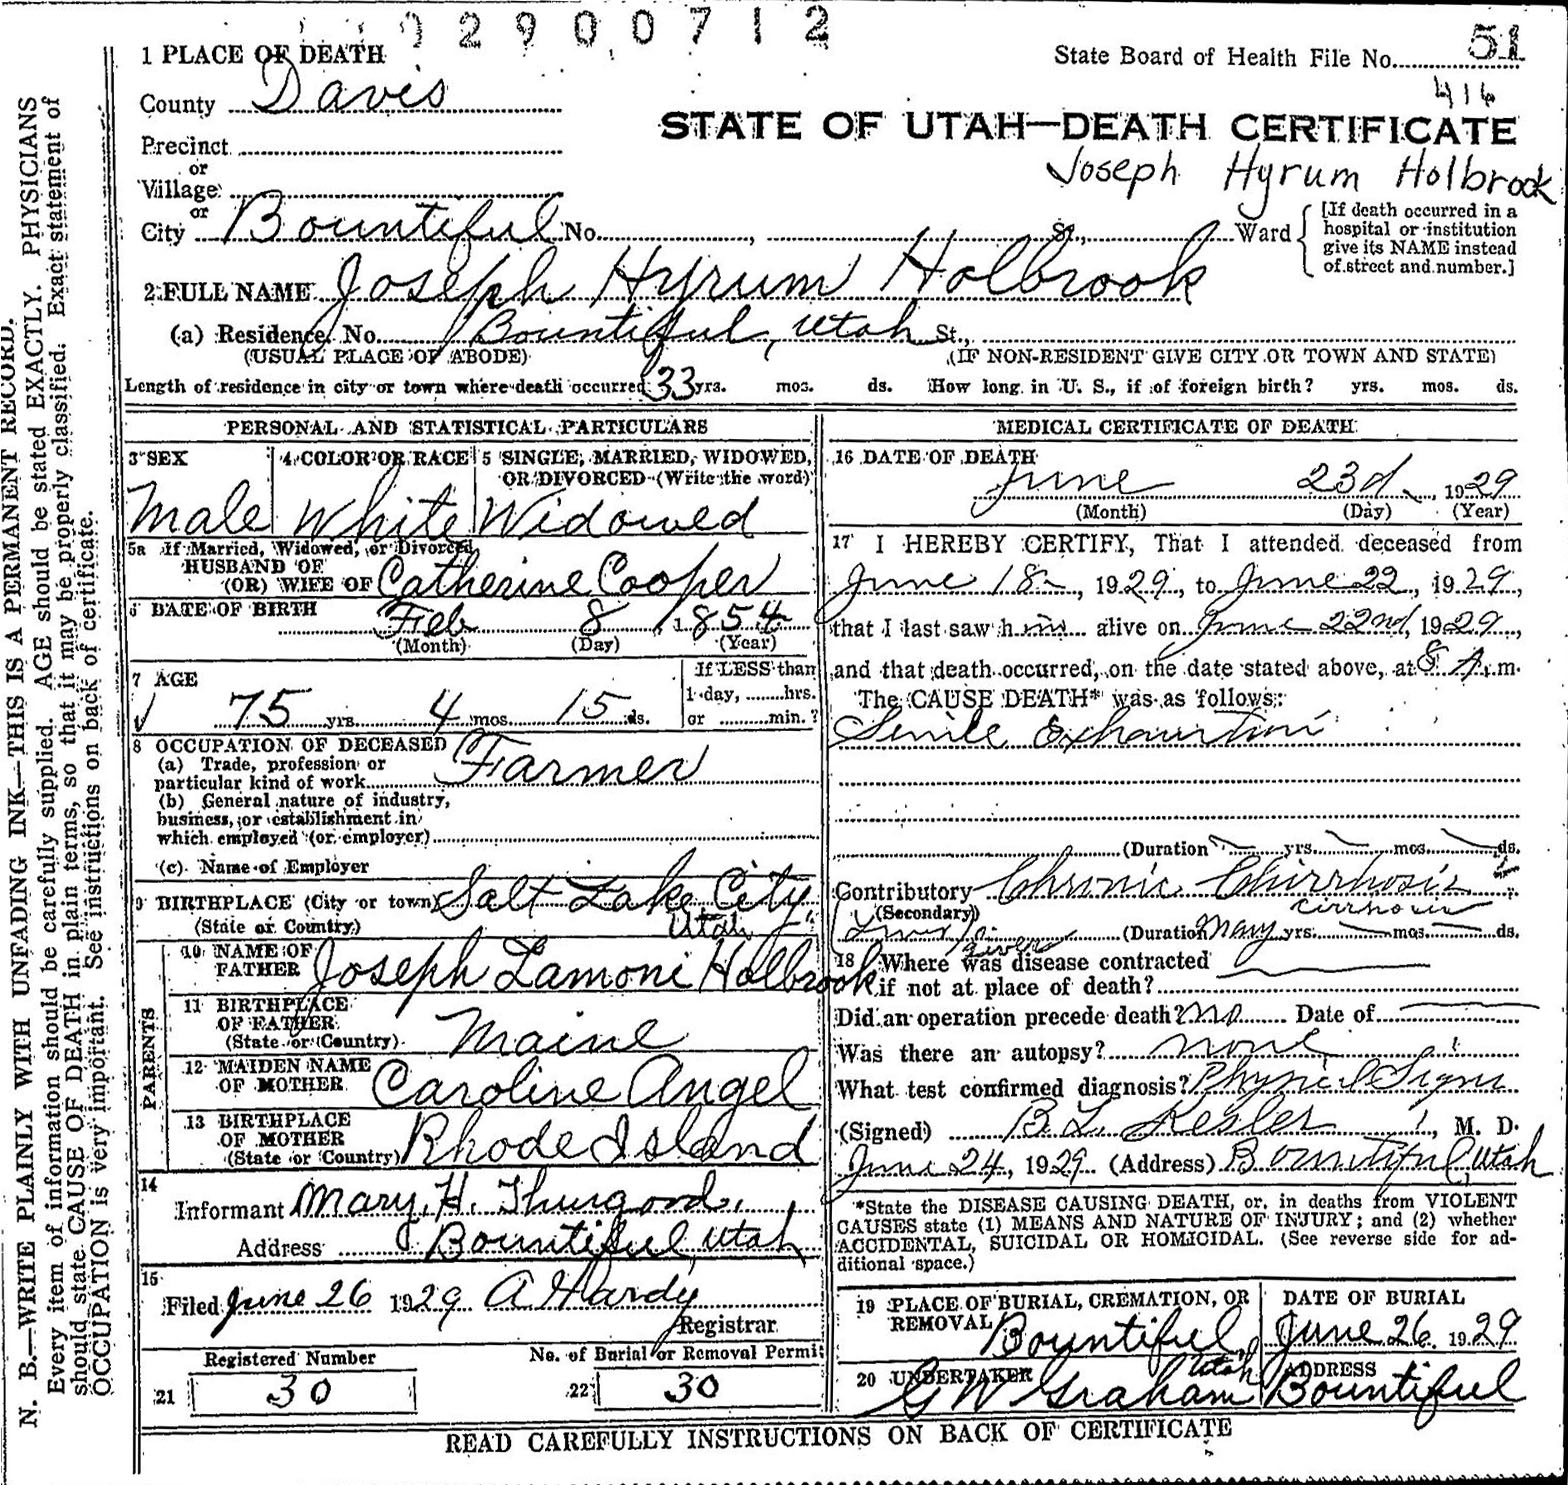 2900712
1 PLACE OF DEATH
State Board of Health File No. 51
416
County Davis
STATE OF UTAH—DEATH CERTIFICATE
Precinct
or
Joseph Hyrum Holbrook
Village
or
City Bountiful No. , St., Ward
[If death occurred in a
hospital or institution
give its NAME instead
of street and number.]
2 FULL NAME Joseph Hyrum Holbrook
(a) Residence, No. Bountiful, Utah St.,
(USUAL PLACE OF ABODE) (IF NON-RESIDENT GIVE CITY OR TOWN AND STATE)
Length of residence in city or town where death occurred 33 yrs. mos. ds. How long in U. S., if of foreign birth? yrs. mos. ds.
PERSONAL AND STATISTICAL PARTICULARS
3 SEX 4 COLOR OR RACE 5 SINGLE, MARRIED, WIDOWED,
OR DIVORCED (Write the word)
Male White Widowed
5a If Married, Widowed, or Divorced
HUSBAND OF
(OR) WIFE OF Catherine Cooper
6 DATE OF BIRTH
Feb 8, 1854
(Month) (Day) (Year)
7 AGE
If LESS than
1 day, hrs.
75 yrs. 4 mos. 15 ds. or min.?
8 OCCUPATION OF DECEASED
(a) Trade, profession or
particular kind of work Farmer
(b) General nature of industry,
business, or establishment in
which employed (or employer)
(c) Name of Employer
9 BIRTHPLACE (City or town) Salt Lake City
(State or Country) Utah
PARENTS
10 NAME OF
FATHER Joseph Lamoni Holbrook
11 BIRTHPLACE
OF FATHER
(State or Country) Maine
12 MAIDEN NAME
OF MOTHER Caroline Angel
13 BIRTHPLACE
OF MOTHER
(State or Country) Rhode Island
14
Informant Mary H. Thurgood,
Address Bountiful, Utah
15
Filed June 26 1929 A Hardy
Registrar
Registered Number No. of Burial or Removal Permit
21 30 22 30
MEDICAL CERTIFICATE OF DEATH
16 DATE OF DEATH
June 23d, 1929
(Month) (Day) (Year)
17 I HEREBY CERTIFY, That I attended deceased from
June 18, 1929, to June 22, 1929,
that I last saw him alive on June 22nd, 1929,
and that death occurred, on the date stated above, at 8 A.m.
The CAUSE DEATH* was as follows:
Senile Exhaustion
(Duration yrs. mos. ds.
Contributory Chronic Chirrhosis
(Secondary) cirrhosis
liver (Duration Many yrs. mos. ds.
18 Where was disease contracted
if not at place of death?
Did an operation precede death? no Date of
Was there an autopsy? none
What test confirmed diagnosis? Physical Signs
(Signed) B L Kesler, M. D.
June 24, 1929 (Address) Bountiful, Utah
*State the DISEASE CAUSING DEATH, or, in deaths from VIOLENT
CAUSES state (1) MEANS AND NATURE OF INJURY; and (2) whether
ACCIDENTAL, SUICIDAL OR HOMICIDAL. (See reverse side for ad-
ditional space.)
19 PLACE OF BURIAL, CREMATION, OR DATE OF BURIAL
REMOVAL Bountiful, Utah June 26 1929
20 UNDERTAKER ADDRESS
G W Graham Bountiful
READ CAREFULLY INSTRUCTIONS ON BACK OF CERTIFICATE
N. B.—WRITE PLAINLY WITH UNFADING INK—THIS IS A PERMANENT RECORD.
Every item of information should be carefully supplied. AGE should be stated EXACTLY. PHYSICIANS
should state CAUSE OF DEATH in plain terms, so that it may be properly classified. Exact statement of
OCCUPATION is very important. See instructions on back of certificate.